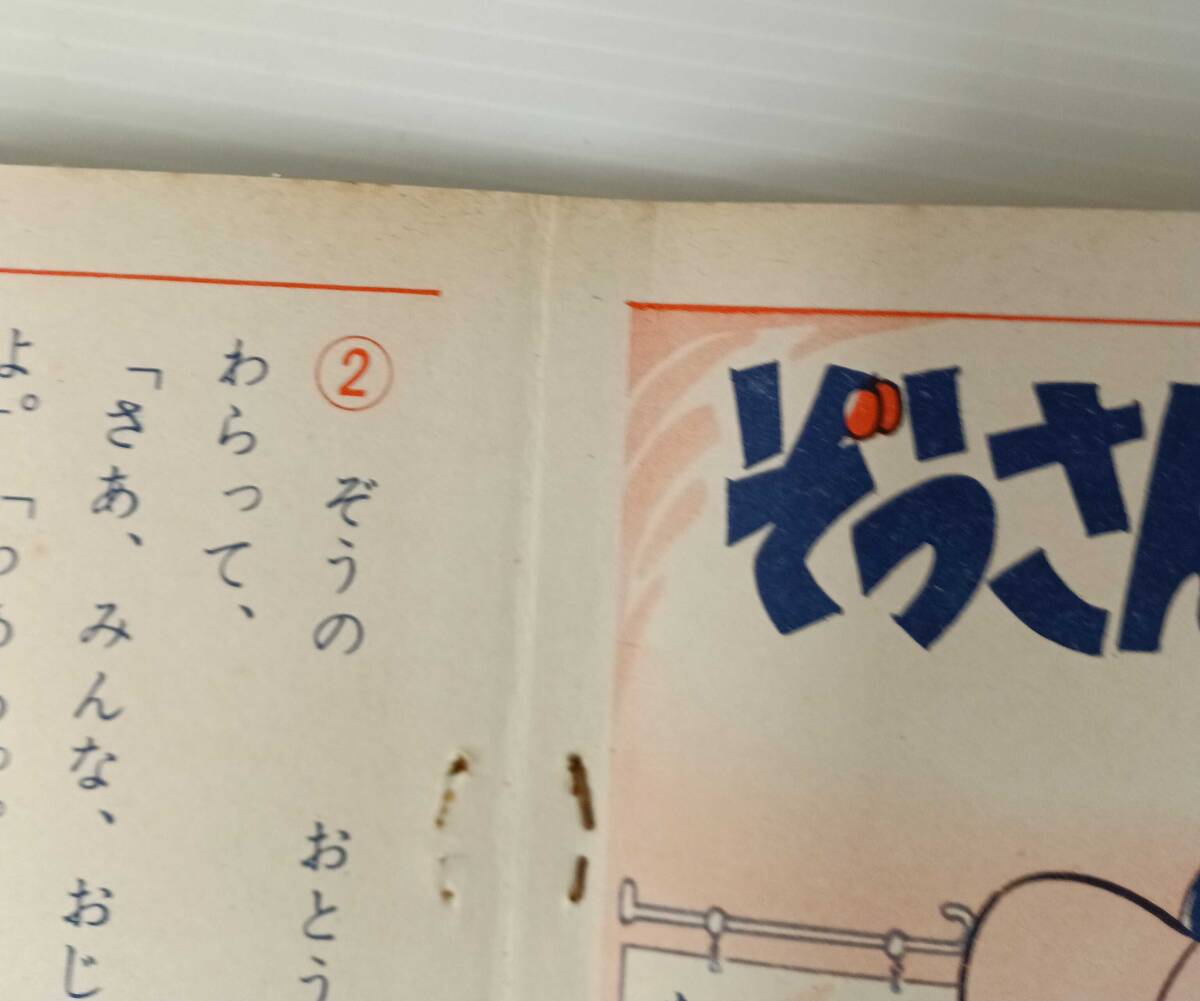 ぞうさん
② ぞうの おとう
わらって、
「さあ、みんな、おじ